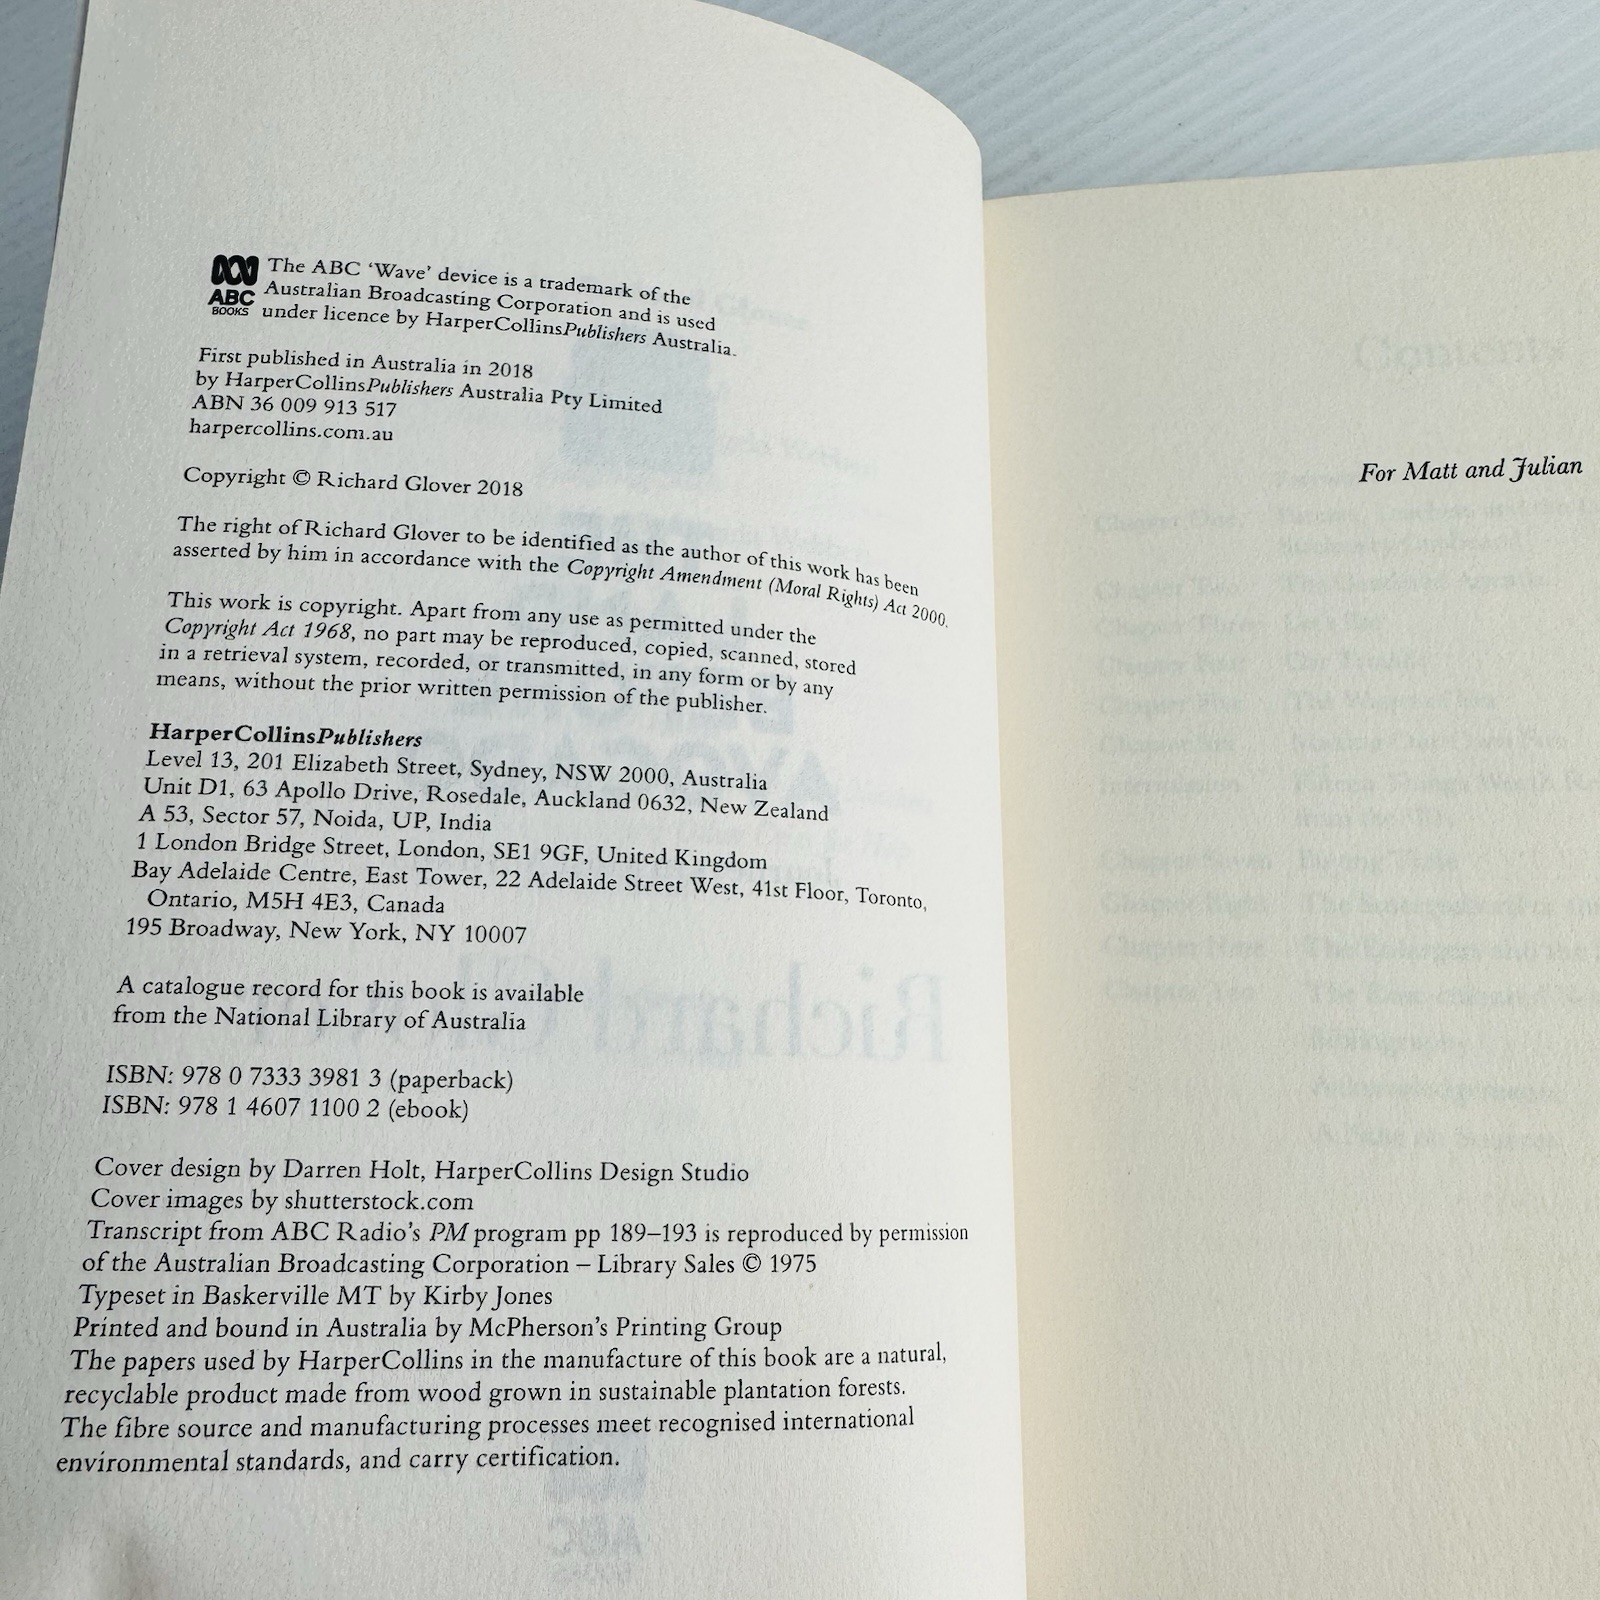 The ABC ‘Wave’ device is a trademark of the
Australian Broadcasting Corporation and is used
under licence by HarperCollinsPublishers Australia.
ABC
BOOKS
First published in Australia in 2018
by HarperCollinsPublishers Australia Pty Limited
ABN 36 009 913 517
harpercollins.com.au
Copyright © Richard Glover 2018
The right of Richard Glover to be identified as the author of this work has been
asserted by him in accordance with the Copyright Amendment (Moral Rights) Act 2000.
This work is copyright. Apart from any use as permitted under the
Copyright Act 1968, no part may be reproduced, copied, scanned, stored
in a retrieval system, recorded, or transmitted, in any form or by any
means, without the prior written permission of the publisher.
HarperCollinsPublishers
Level 13, 201 Elizabeth Street, Sydney, NSW 2000, Australia
Unit D1, 63 Apollo Drive, Rosedale, Auckland 0632, New Zealand
A 53, Sector 57, Noida, UP, India
1 London Bridge Street, London, SE1 9GF, United Kingdom
Bay Adelaide Centre, East Tower, 22 Adelaide Street West, 41st Floor, Toronto,
Ontario, M5H 4E3, Canada
195 Broadway, New York, NY 10007
A catalogue record for this book is available
from the National Library of Australia
ISBN: 978 0 7333 3981 3 (paperback)
ISBN: 978 1 4607 1100 2 (ebook)
Cover design by Darren Holt, HarperCollins Design Studio
Cover images by shutterstock.com
Transcript from ABC Radio’s PM program pp 189–193 is reproduced by permission
of the Australian Broadcasting Corporation – Library Sales © 1975
Typeset in Baskerville MT by Kirby Jones
Printed and bound in Australia by McPherson’s Printing Group
The papers used by HarperCollins in the manufacture of this book are a natural,
recyclable product made from wood grown in sustainable plantation forests.
The fibre source and manufacturing processes meet recognised international
environmental standards, and carry certification.
For Matt and Julian